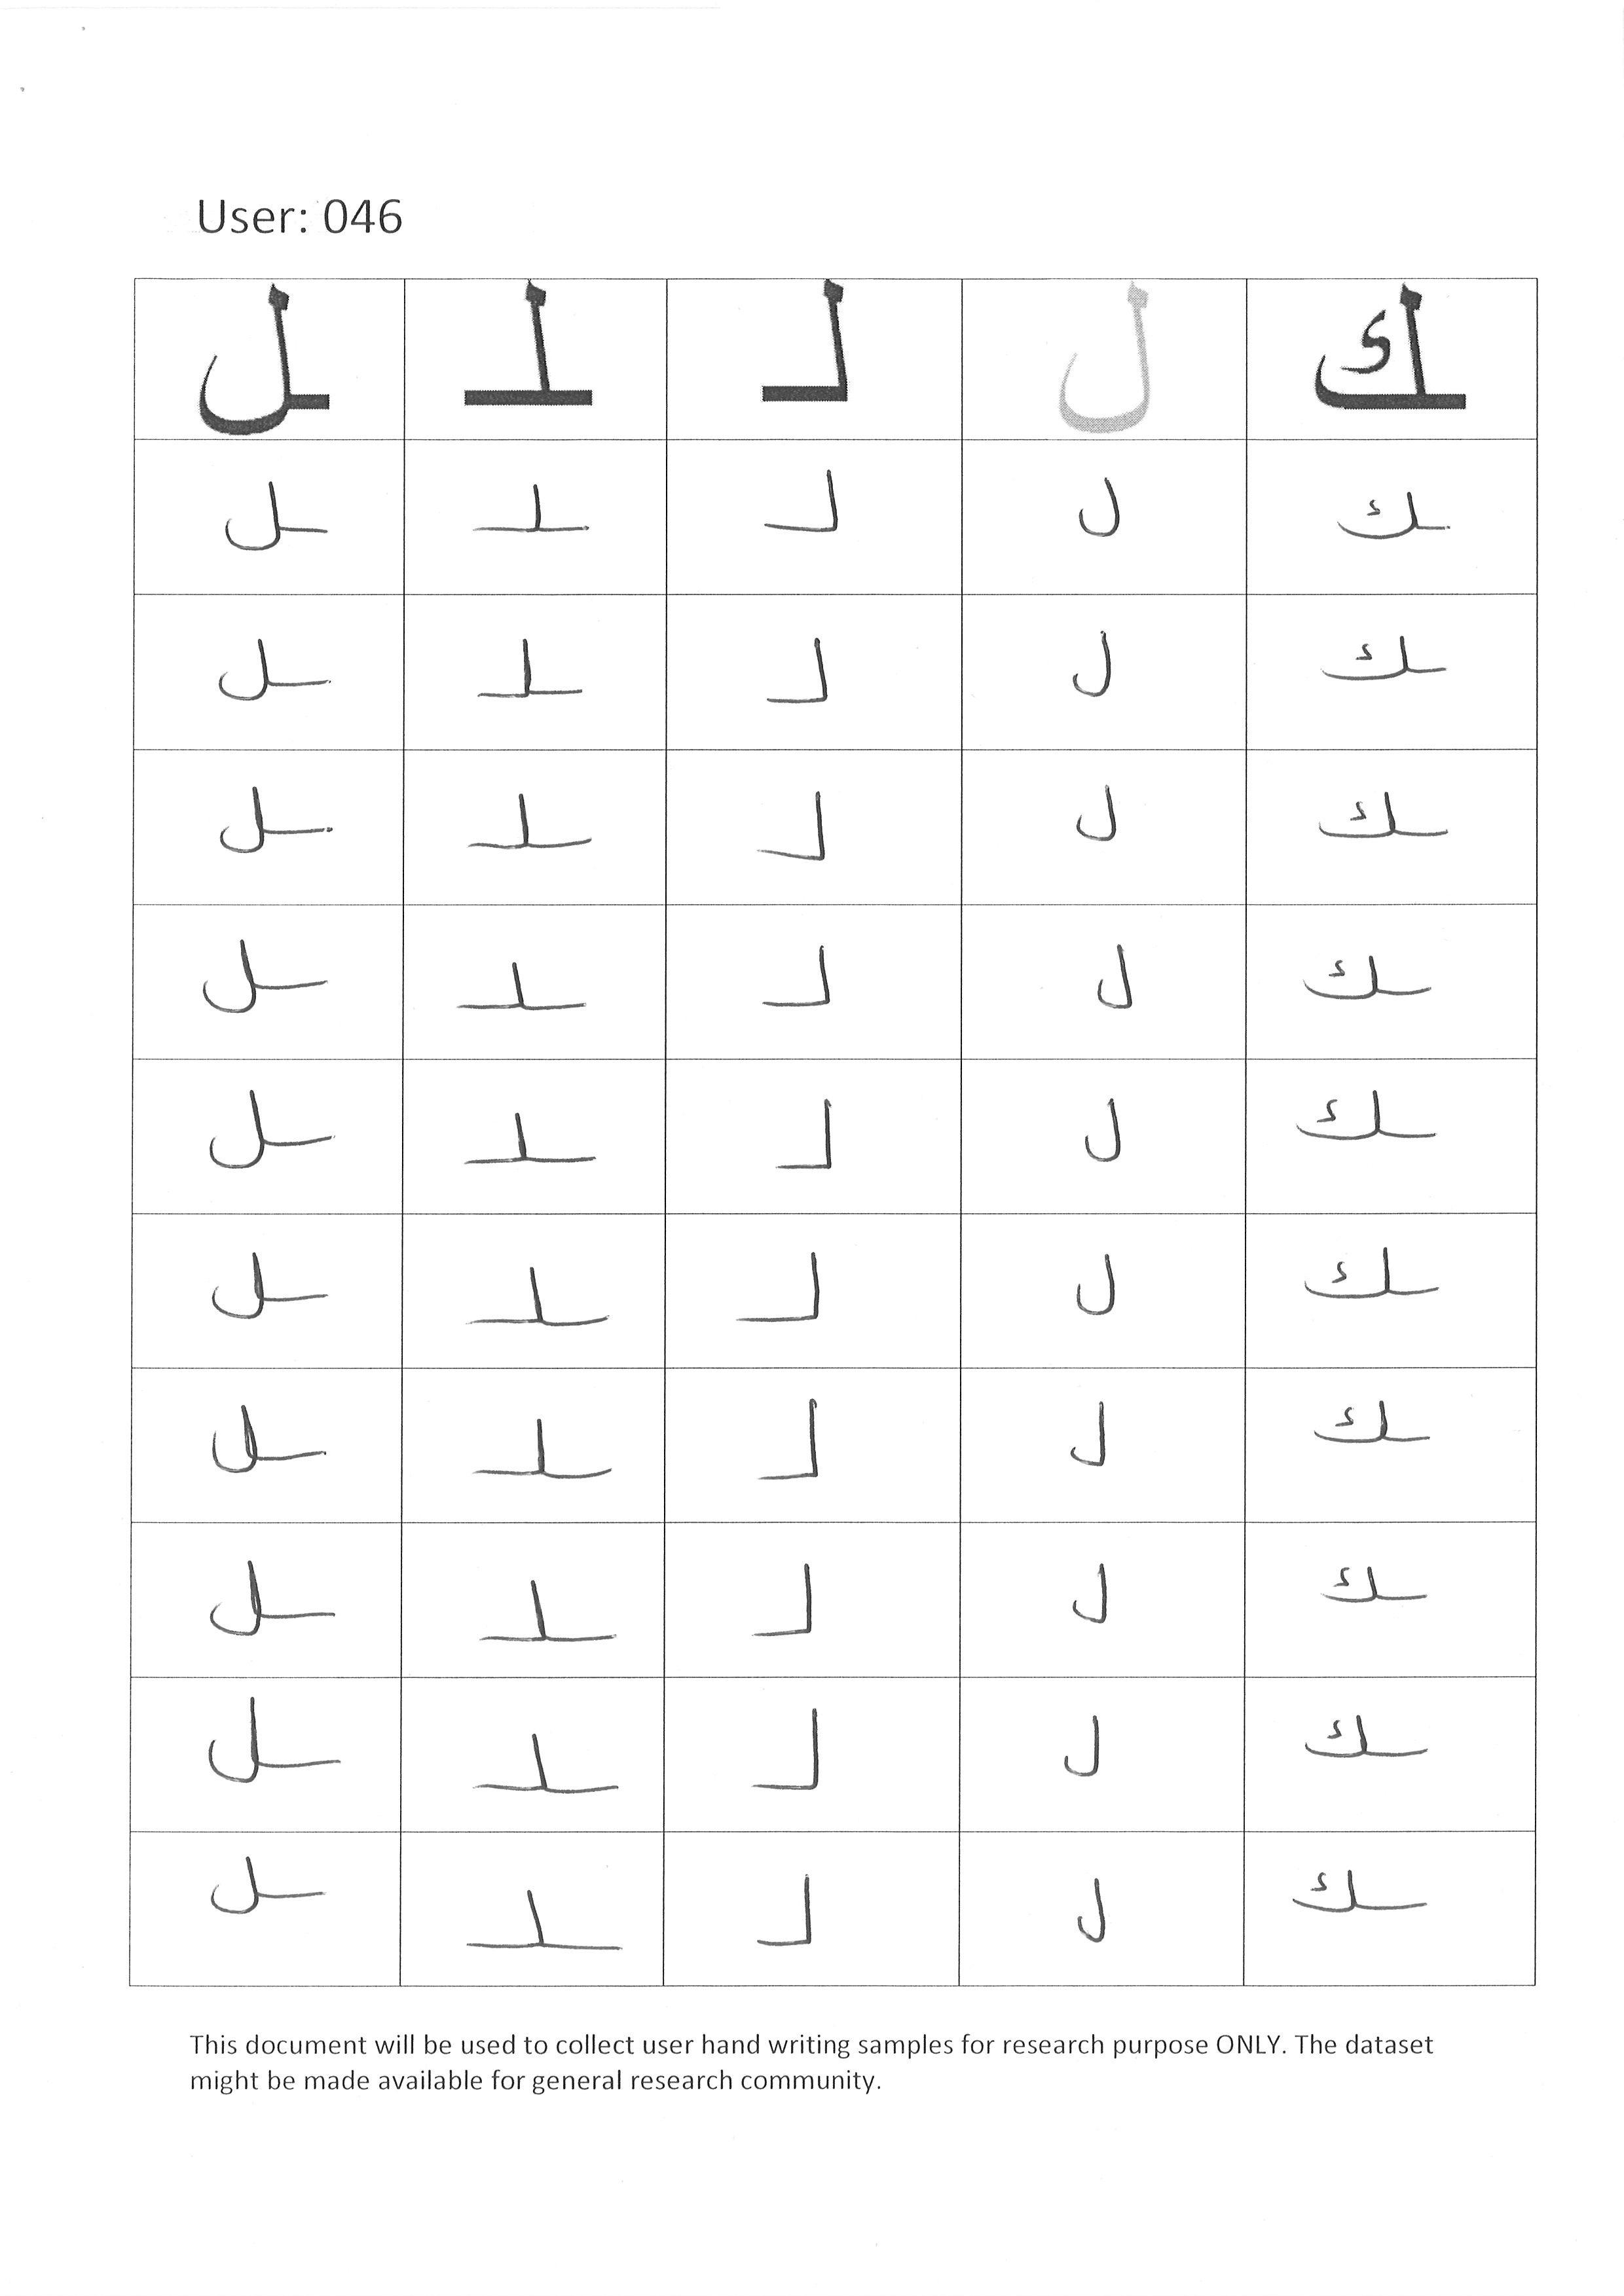 User: 046
ـك ل لـ ـلـ ـل
ـك ل لـ ـلـ ـل
ـك ل لـ ـلـ ـل
ـك ل لـ ـلـ ـل
ـك ل لـ ـلـ ـل
ـك ل لـ ـلـ ـل
ـك ل لـ ـلـ ـل
ـك ل لـ ـلـ ـل
ـك ل لـ ـلـ ـل
ـك ل لـ ـلـ ـل
ـك ل لـ ـلـ ـل
This document will be used to collect user hand writing samples for research purpose ONLY. The dataset
might be made available for general research community.